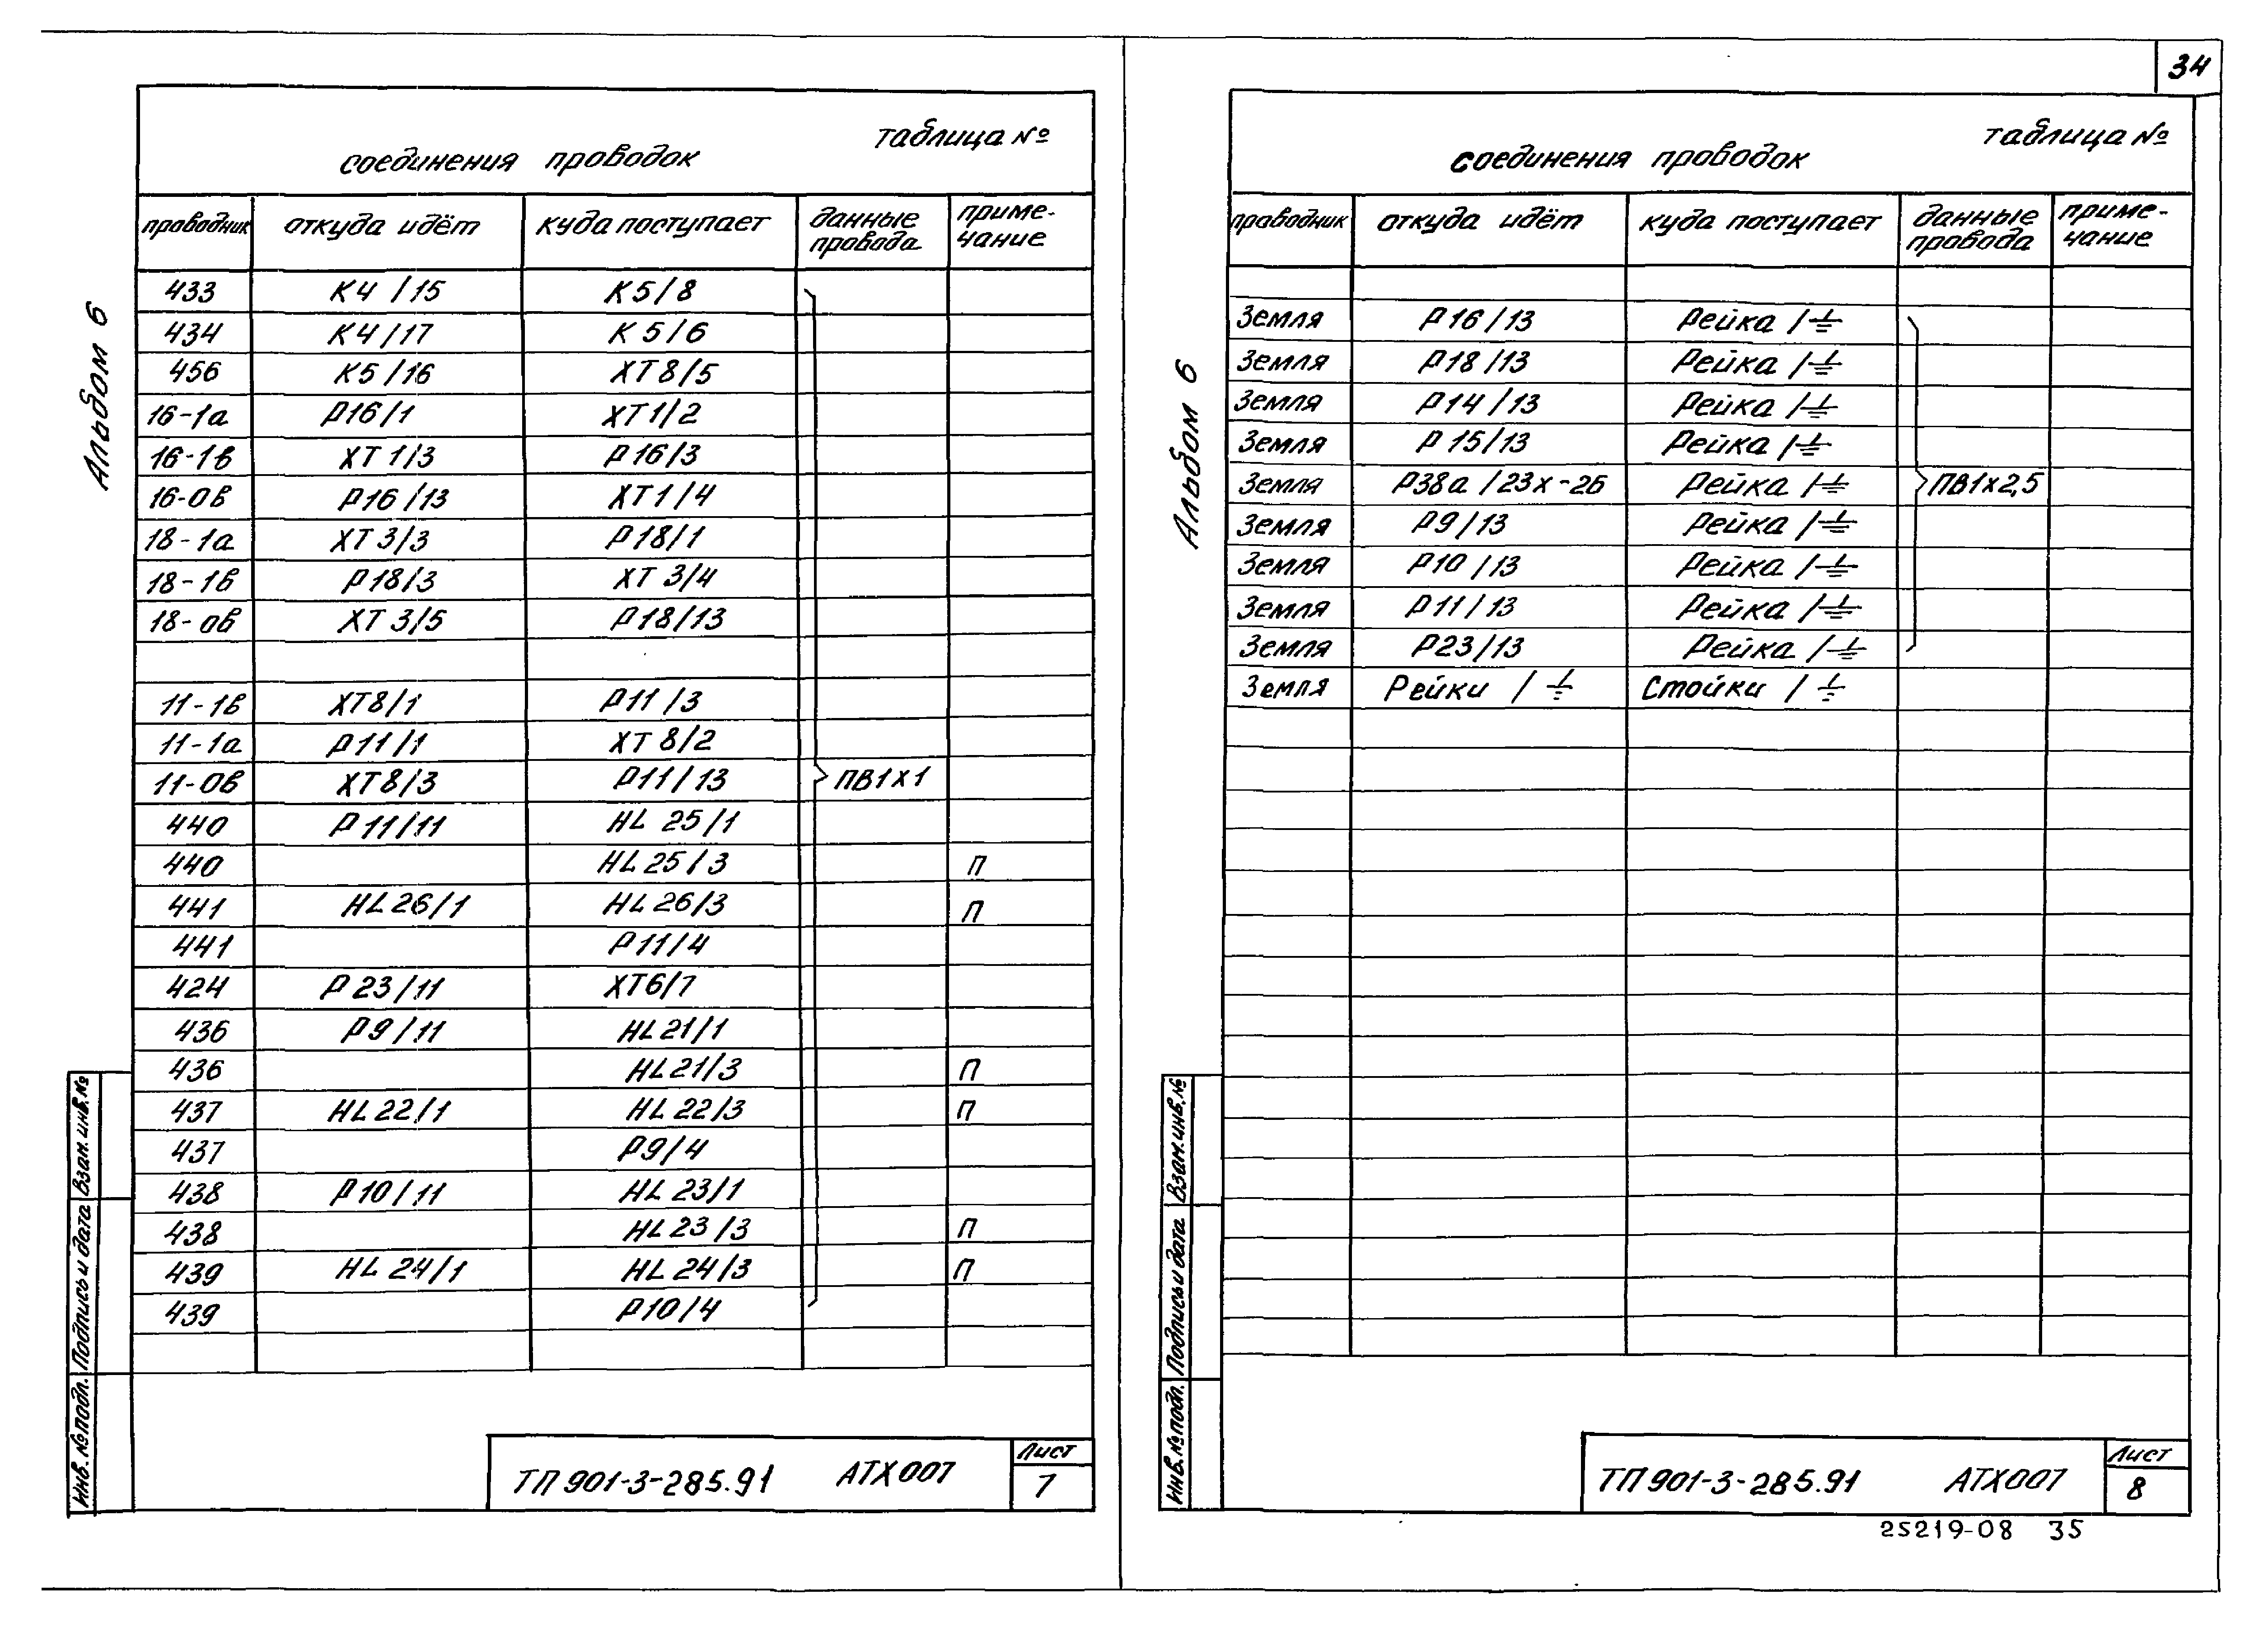 34
Альбом 6
таблица №
соединения проводок
проводник откуда идёт куда поступает данные провода приме-чание
433 К4/15 К5/8
434 К4/17 К5/6
456 К5/16 ХТ8/5
16-1а Р16/1 ХТ1/2
16-1в ХТ1/3 Р16/3
16-0в Р16/13 ХТ1/4
18-1а ХТ3/3 Р18/1
18-1в Р18/3 ХТ3/4
18-0в ХТ3/5 Р18/13
11-1в ХТ8/1 Р11/3
11-1а Р11/1 ХТ8/2
11-0в ХТ8/3 Р11/13 ПВ1х1
440 Р11/11 HL25/1
440 HL25/3 П
441 HL26/1 HL26/3 П
441 Р11/4
424 Р23/11 ХТ6/7
436 Р9/11 HL21/1
436 HL21/3 П
437 HL22/1 HL22/3 П
437 Р9/4
438 Р10/11 HL23/1
438 HL23/3 П
439 HL24/1 HL24/3 П
439 Р10/4
Взам. инв. №
Подпись и дата
Инв. № подл.
ТП 901-3-285.91 АТХ007
Лист
7
Альбом 6
таблица №
соединения проводок
проводник откуда идёт куда поступает данные провода приме-чание
Земля Р16/13 Рейка /⏚
Земля Р18/13 Рейка /⏚
Земля Р14/13 Рейка /⏚
Земля Р15/13 Рейка /⏚
Земля Р38а/23х-2б Рейка /⏚ ПВ1х2,5
Земля Р9/13 Рейка /⏚
Земля Р10/13 Рейка /⏚
Земля Р11/13 Рейка /⏚
Земля Р23/13 Рейка /⏚
Земля Рейки /⏚ Стойки /⏚
Взам. инв. №
Подпись и дата
Инв. № подл.
ТП 901-3-285.91 АТХ007
Лист
8
25219-08 35